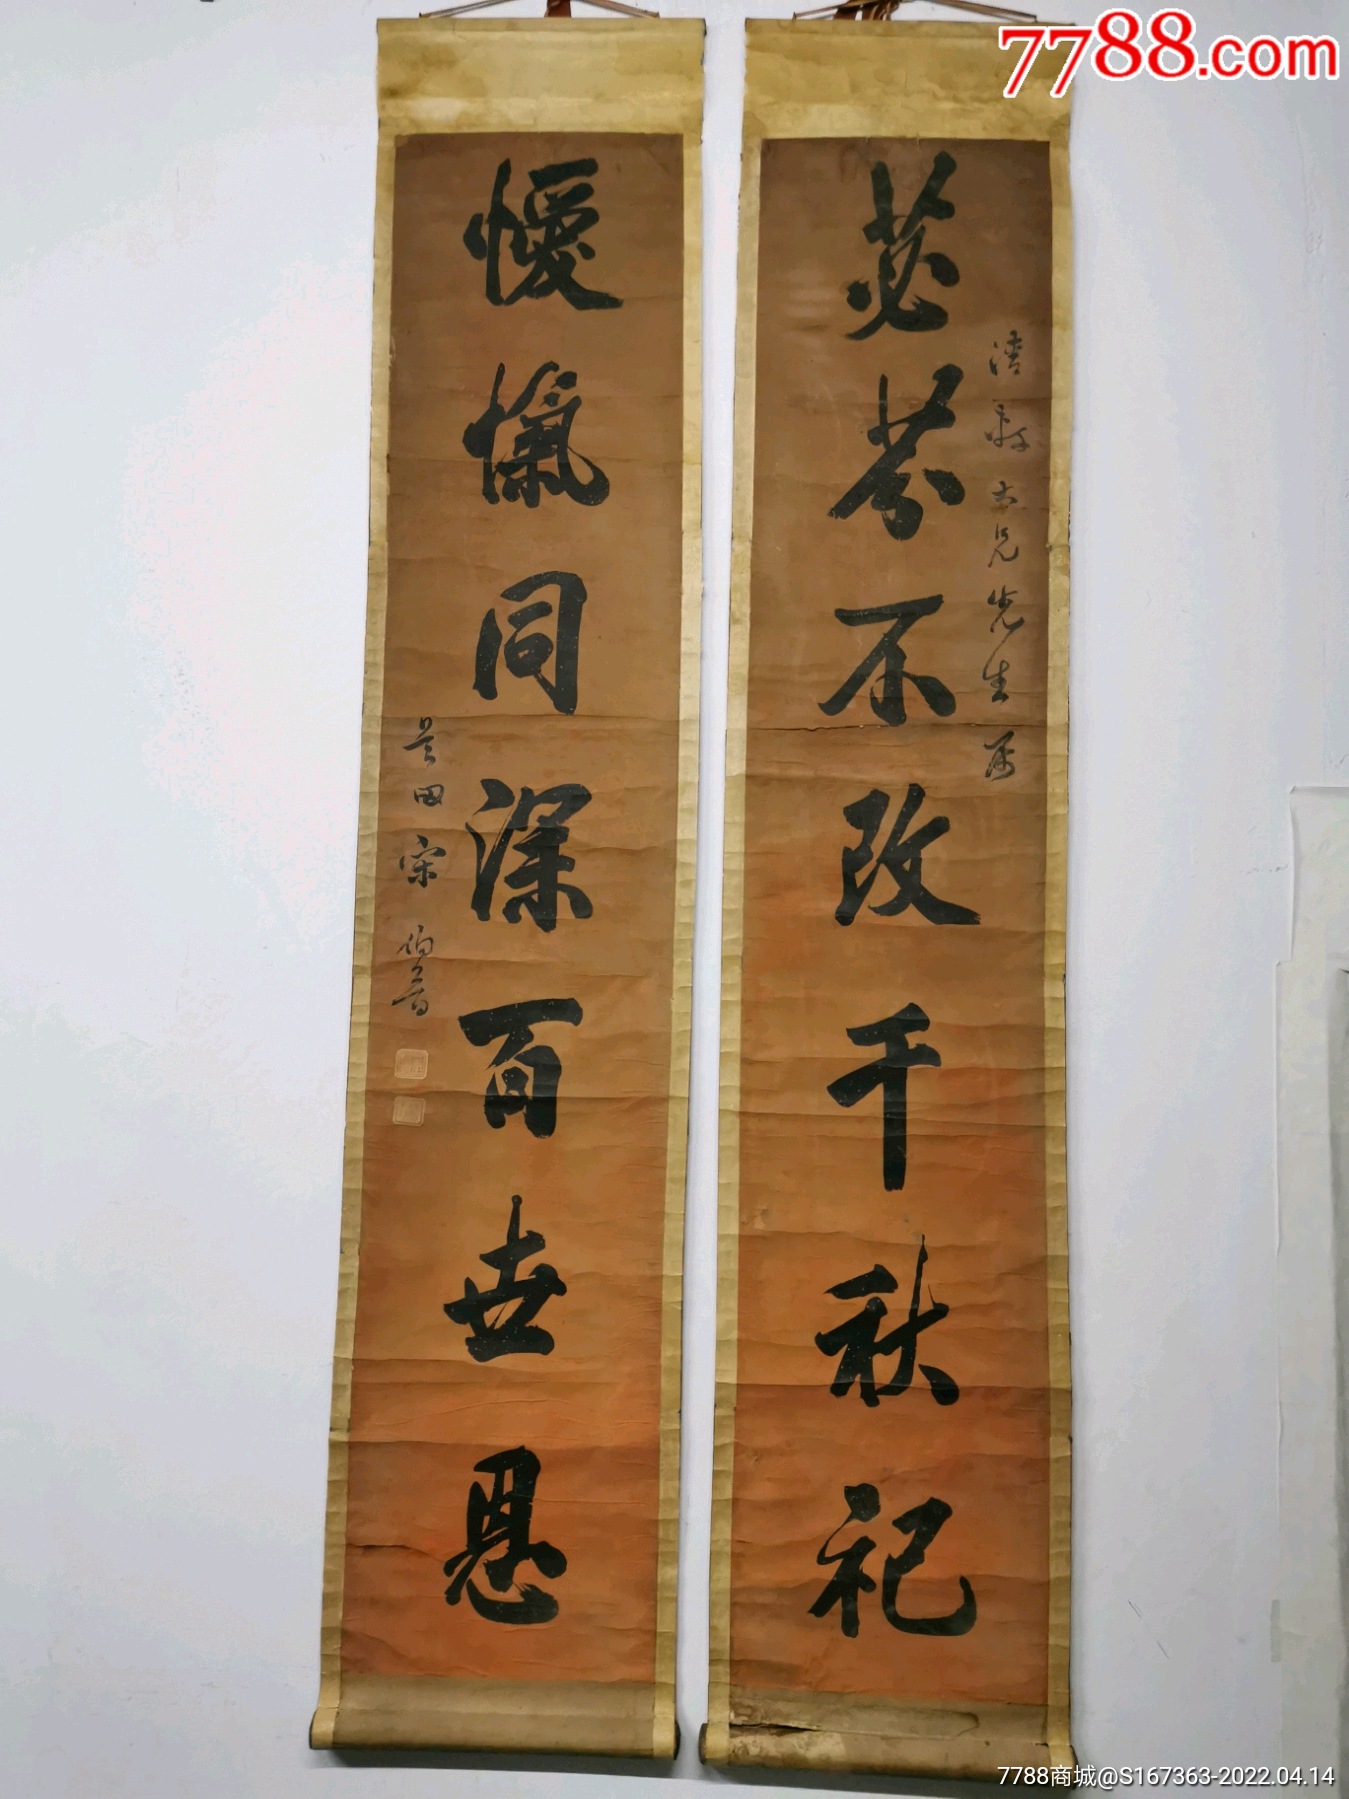 7788.com
苾芬不改千秋祀
清
大兄先生属
僾愾同深百世恩
吴田宋伯鲁
7788商城@S167363-2022.04.14